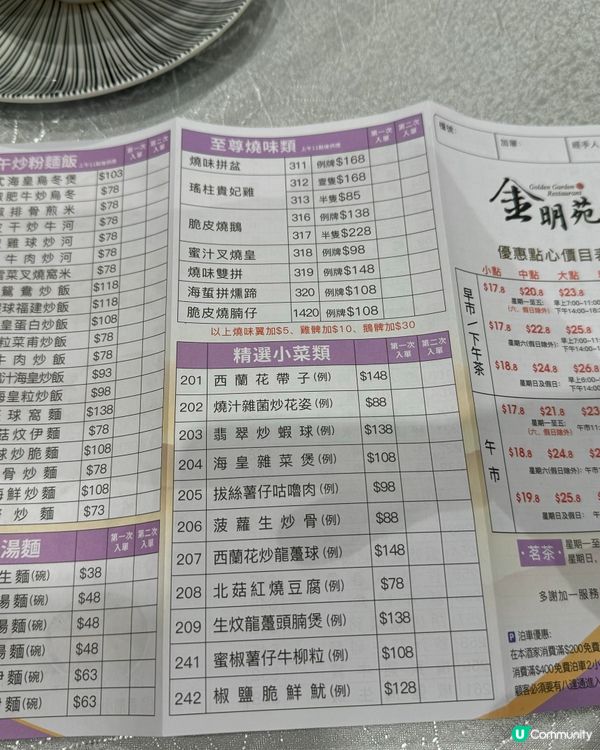 午炒粉麵飯 上午11點後供應 第一次入單 第二次入單
海皇烏冬煲 $103
肥牛炒烏冬 $78
排骨煎米 $78
干炒牛河 $78
雞球炒河 $78
牛肉炒河 $78
雪菜叉燒窩米 $78
鴛鴦炒飯 $118
球福建炒飯 $118
皇蛋白炒飯 $108
粒菜甫炒飯 $78
牛肉炒飯 $78
汁海皇炒飯 $93
海皇粒炒飯 $98
球窩麵 $138
菇炆伊麵 $78
球炒脆麵 $108
骨炒麵 $78
海鮮炒麵 $108
炒麵 $73
湯麵 第一次入單 第二次入單
生麵(碗) $38
湯麵(碗) $48
湯麵(碗) $48
湯麵(碗) $48
伊麵(碗) $63
伊麵(碗) $63
至尊燒味類 上午11點後供應 第一次入單 第二次入單
燒味拼盆 311 例牌$168
瑤柱貴妃雞 312 壹隻$168
313 半隻$85
脆皮燒鵝 316 例牌$138
317 半隻$228
蜜汁叉燒皇 318 例牌$98
燒味雙拼 319 例牌$148
海蜇拼燻蹄 320 例牌$108
脆皮燒腩仔 1420 例牌$108
以上燒味翼加$5、雞髀加$10、鵝髀加$30
精選小菜類 第一次入單 第二次入單
201 西蘭花帶子(例) $148
202 燒汁雜菌炒花姿(例) $88
203 翡翠炒蝦球(例) $138
204 海皇雜菜煲(例) $108
205 拔絲薯仔咕嚕肉(例) $98
206 菠蘿生炒骨(例) $88
207 西蘭花炒龍躉球(例) $148
208 北菇紅燒豆腐(例) $78
209 生炆龍躉頭腩煲(例) $138
241 蜜椒薯仔牛柳粒(例) $108
242 椒鹽脆鮮魷(例) $128
檯號:
加單:
經手人
Golden Garden Restaurant
金明苑
優惠點心價目表
小點 中點 大點
早市/下午茶
$17.8 $20.8 $23.8
星期一至五: (六、假日除外) 早上7:00-11: 下午14:00-18:
$17.8 $22.8 $25.8
星期六(假日除外): 早上7:00-11 下午14:00-
$18.8 $24.8 $26.8
星期日及假日: 早上6:00- 下午14:00
午市
$17.8 $21.8 $23
星期一至五: (六、假日除外) 午市11:
$18.8 $24.8 $2
星期六(假日除外): 午市
$19.8 $25.8 $
星期日及假日: 午
·茗茶· 星期一至
星期日、
多謝加一服務
P 泊車優惠:
在本酒家消費滿$200免費
消費滿$400免費泊車2小
顧客必須要有八達通進入
U Community